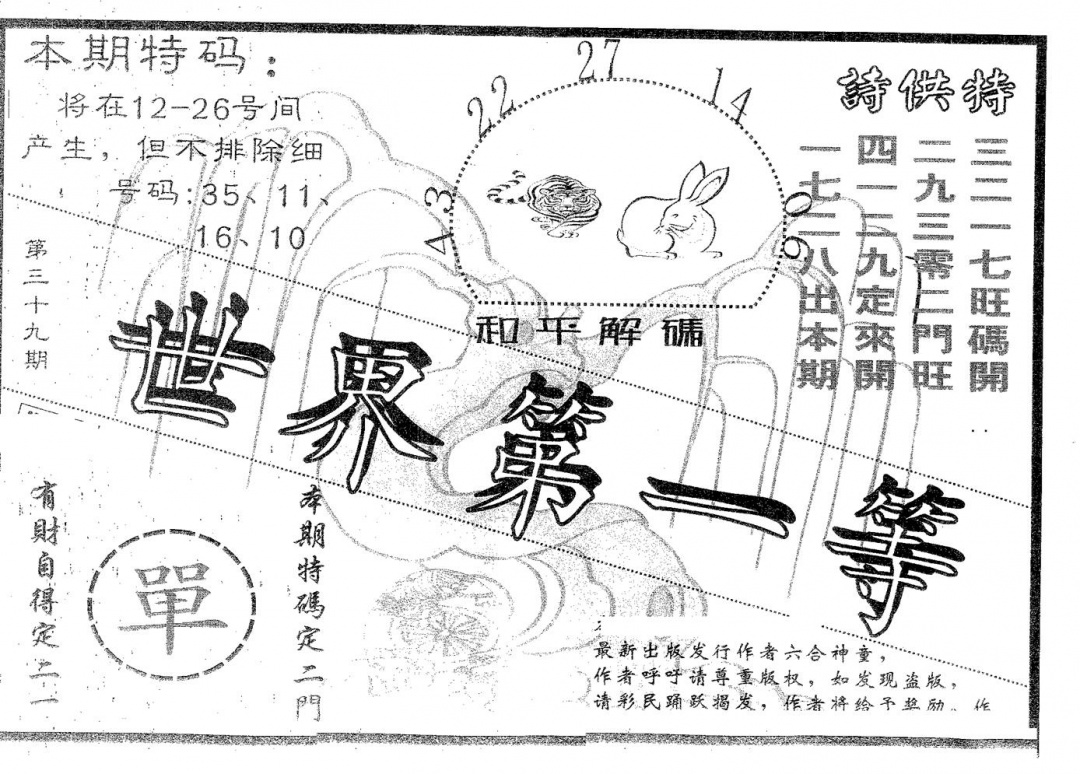 本期特码：
将在12-26号间
产生，但不排除细
号码:35、11、
16、10
第三十九期
22
27
14
43
09
和平解
特供詩
三三一七旺碼開
二九三零二門旺
四一二九定來開
一七二八出本期
世界第一等
有財自得定二一
單
本期特碼定二門
最新出版发行作者六合神童，
作者呼吁请尊重版权，如发现盗版，
请彩民踊跃揭发，作者将给予奖励。作